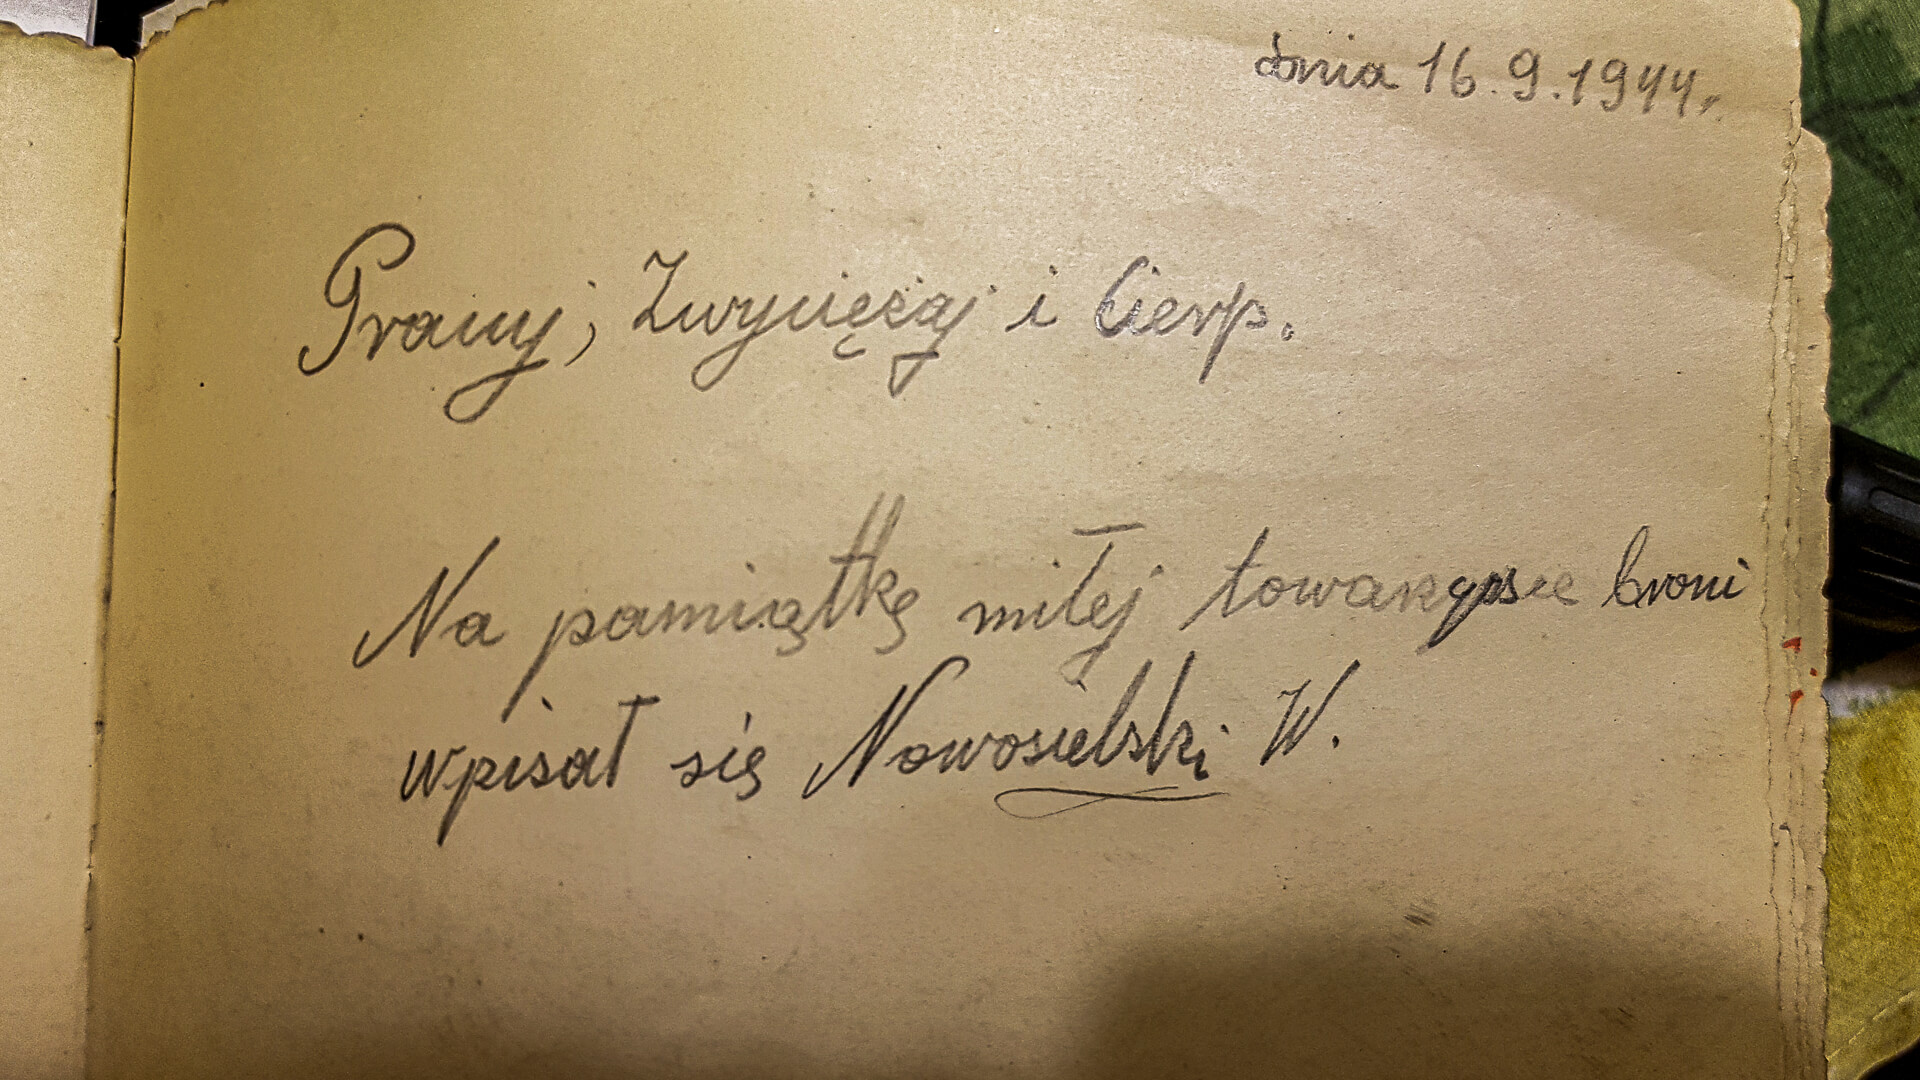 dnia 16.9.1944r.
Pracuj, Zwyciężaj i Cierp.
Na pamiątkę miłej towarzyszce broni
wpisał się Nowosielski W.